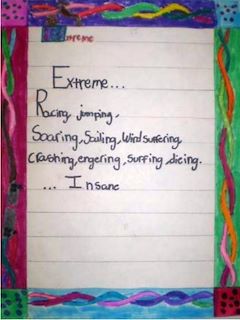 Extreme
Extreme...
Racing, jumping,
Soaring, Sailing, Wind suffering,
Crashing, engering, surfing, dicing.
... Insane